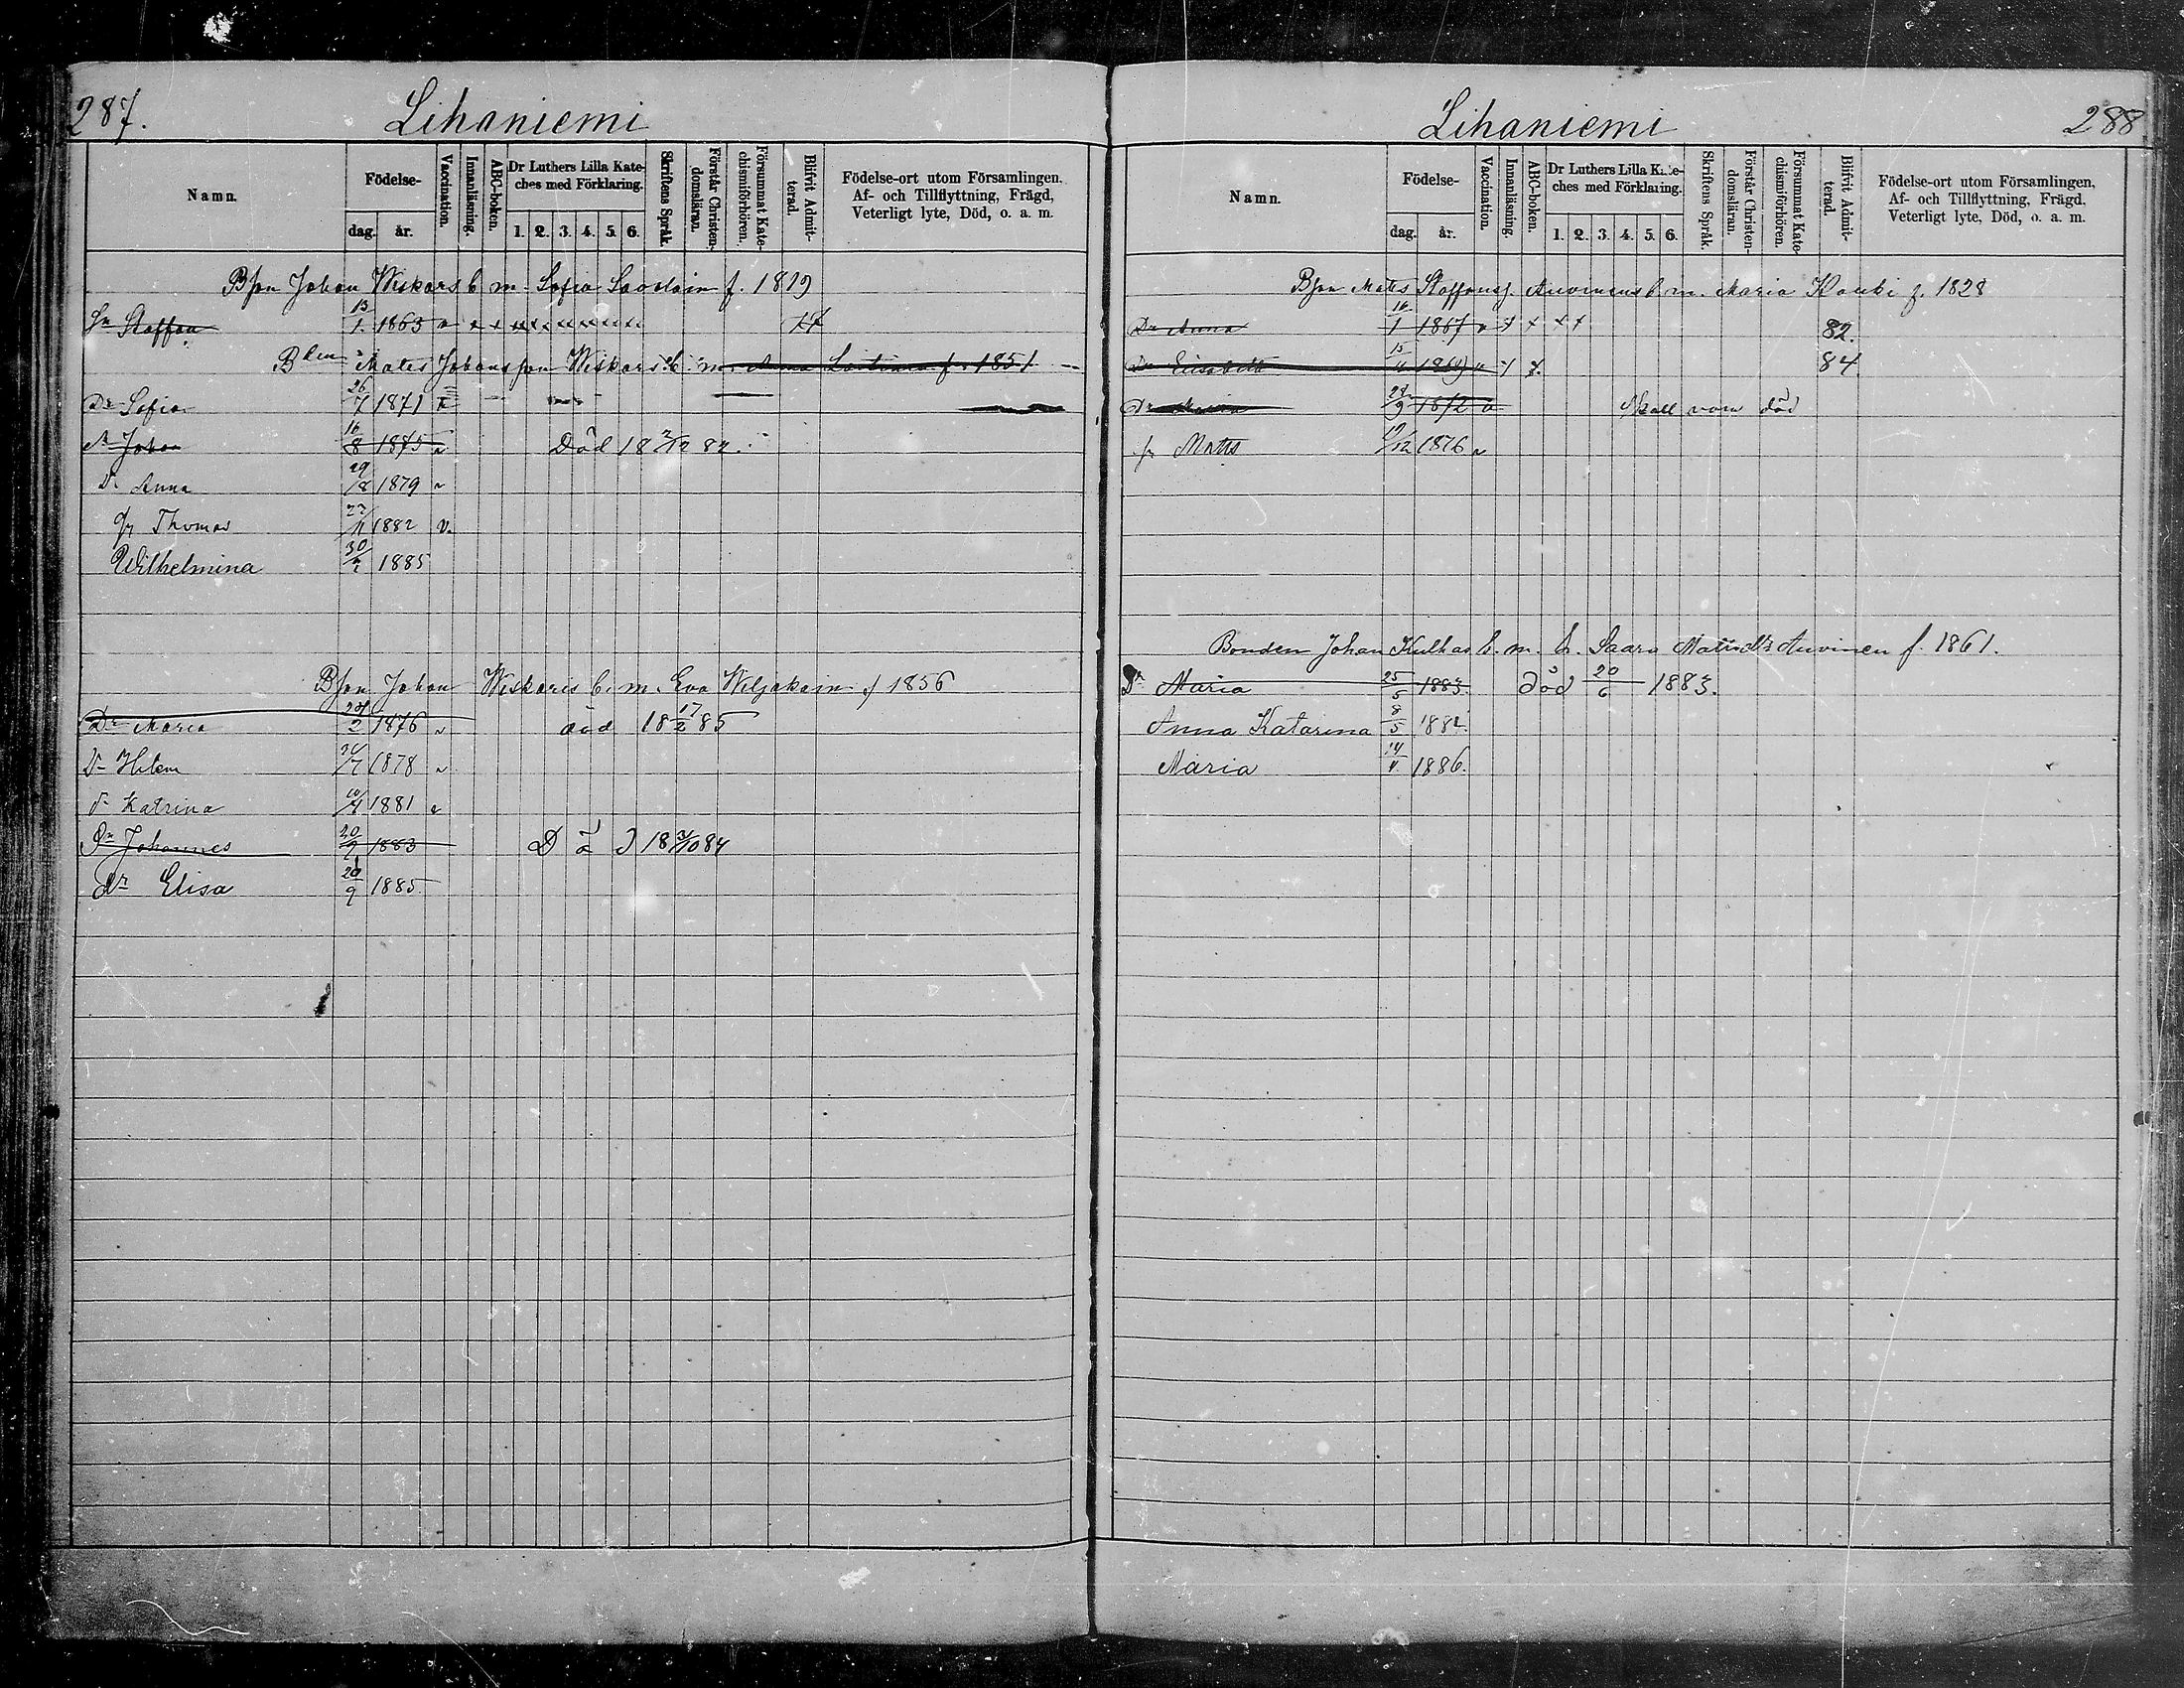 287.
Lihaniemi
Namn.
Födelse-
dag. år.
Vaccination.
Innanläsning.
ABC-boken.
Dr Luthers Lilla Kate-
ches med Förklaring.
1. 2. 3. 4. 5. 6.
Skriftens Språk.
Förstår Christen-
domsläran.
Försummat Kate-
chismiförhören.
Blifvit Admit-
terad.
Födelse-ort utom Församlingen,
Af- och Tillflyttning, Frägd,
Veterligt lyte, Död, o. a. m.
Bson Johan Wiskars b. m. Sofia f. 1819
Sn Staffan 13/1 1865
Mats Johansson Wiskars b. m. Anna f. 1851
Dr Sofia 26/7 1871
Johan 16/8 1875 v Död 18 2/12 82.
Dr Anna 29/8 1879 v
Thomas 1882 v.
Wilhelmina 1885
Bson Johan Wiskaris b. m. Eva Wiljakain f 1856
Dr Maria 24/2 1876 v död 18 17/2 85
Dr Helena 1878 v
dr Katrina 10/4 1881 v
Johannes 20/9 1883 Död 18 3/10 84
dr Elisa 20/9 1885.
Lihaniemi
288
Namn.
Födelse-
dag. år.
Vaccination.
Innanläsning.
ABC-boken.
Dr Luthers Lilla Kate-
ches med Förklaring.
1. 2. 3. 4. 5. 6.
Skriftens Språk.
Förstår Christen-
domsläran.
Försummat Kate-
chismiförhören.
Blifvit Admit-
terad.
Födelse-ort utom Församlingen,
Af- och Tillflyttning, Frägd,
Veterligt lyte, Död, o. a. m.
Bson Mats Staffanss. Auvinens b. m. Maria Kouki f. 1828
Dr Anna 16/1 1867 v x x x x 82.
Dr Elisabeth 84
1872 v Skall vara död
Mats 1876 v
Bonden Johan Kulhas b. m. h. Saara Matsdtr Auvinen f. 1861.
Dr Maria 25/5 1883. död 20/6 1883.
Anna Katarina 8/5
Maria 1886.